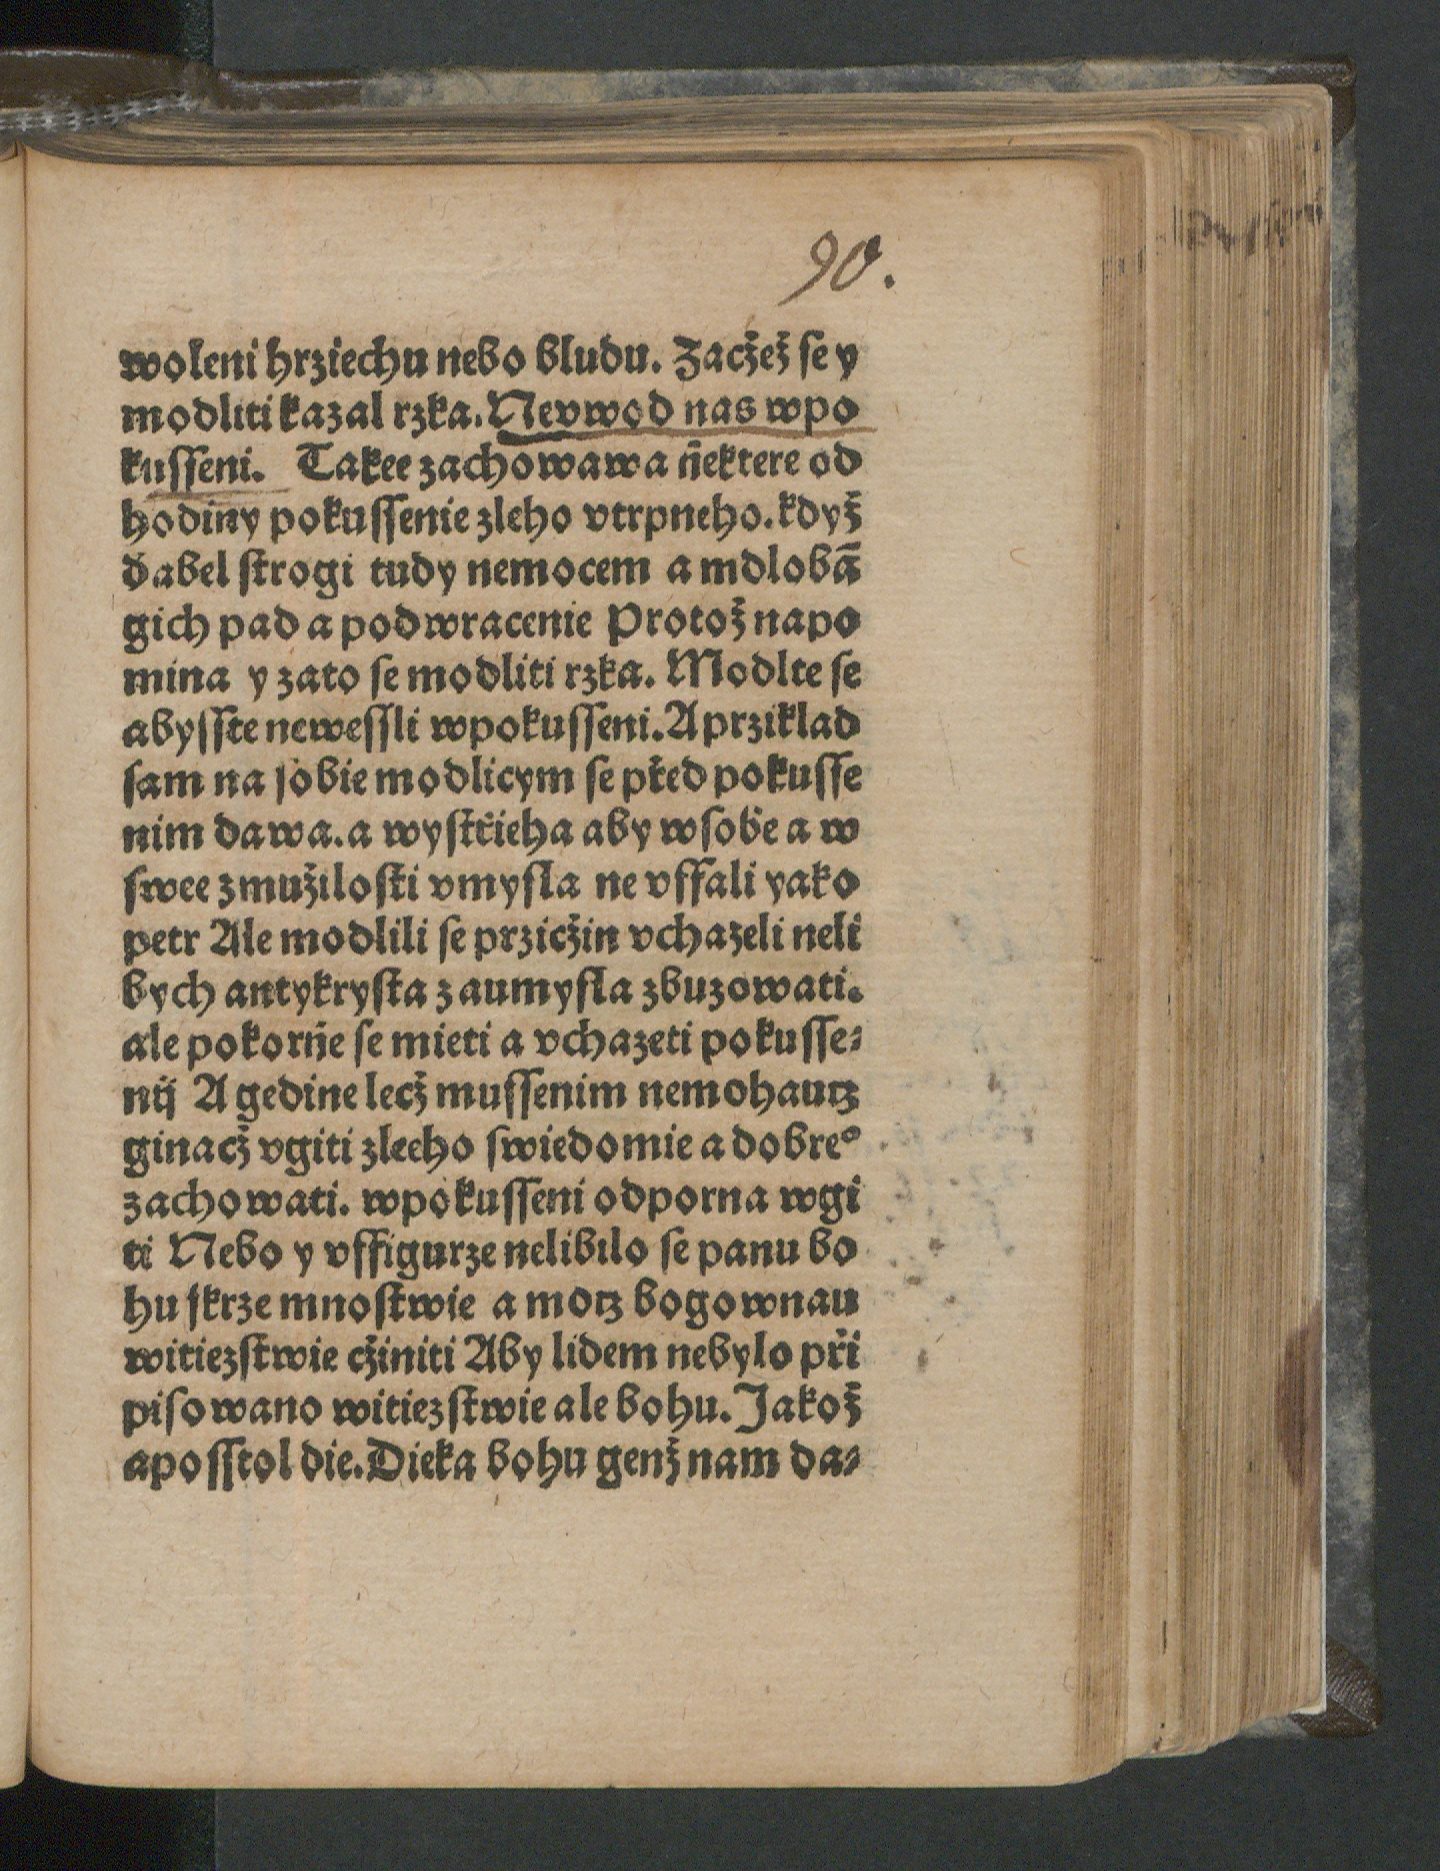 90.
woleni hrziechu nebo bludu. Zacžež se y
modliti kazal rzka. Nevwod nas wpo
kusseni. Takee zachowawa ňektere od
hodiny pokussenie zleho vtrpneho. když
ďabel strogi tudy nemocem a mdlobā
gich pad a podwracenie Protož napo
mina y zato se modliti rzka. Modlte se
abysste newessli wpokusseni. A prziklad
sam na sobie modlicym se před pokusse
nim dawa. a wystřieha aby wsobie a w
swee zmužilosti vmysla ne vffali yako
petr Ale modlili se przicžin vchazeli neli
bych antykrysta zaumysla zbuzowati.
ale pokorňe se mieti a vchazeti pokusse⸗
nij A gedine lecž mussenim nemohautz
ginacž vgiti zleeho swiedomie a dobreº
zachowati. wpokusseni odporna wgi
ti Nebo y vffigurze nelibilo se panu bo
hu skrze mnostwie a motz bogownau
witiezstwie cžiniti Aby lidem nebylo při
pisowano witiezstwie ale bohu. Jakož
aposstol die. Dieka bohu genž nam da⸗